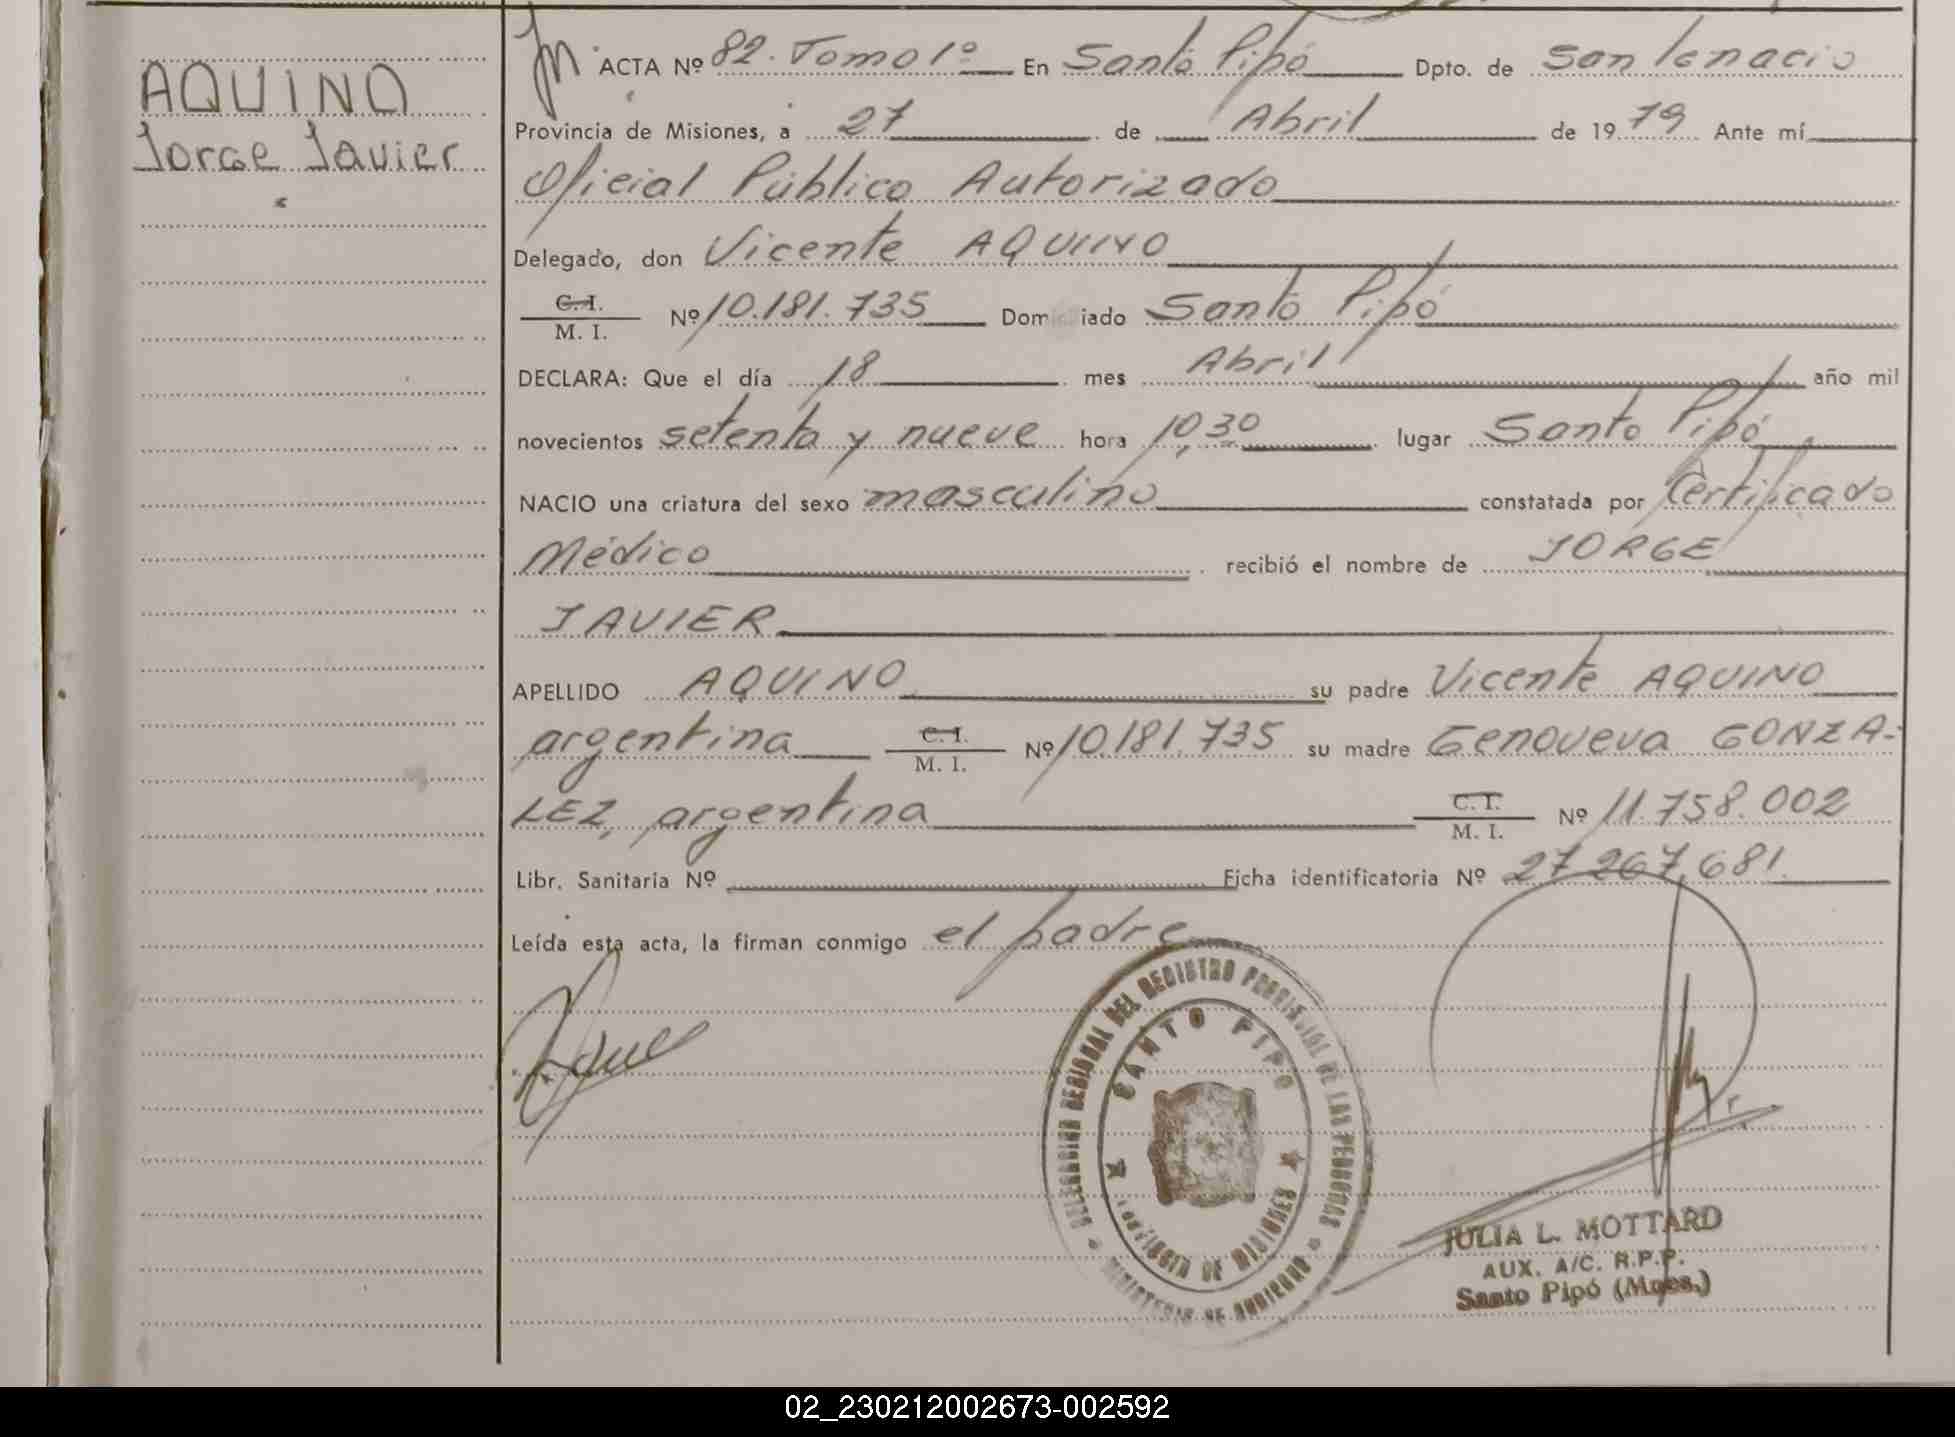 AQUINO
Jorge Javier
ACTA Nº 82. Tomo 1º En Santo Pipó Dpto. de San Ignacio
Provincia de Misiones, a 27 de Abril de 1979 Ante mí
Oficial Público Autorizado
Delegado, don Vicente AQUINO
C.I. / M. I. Nº 10.181.735 Domiciliado Santo Pipó
DECLARA: Que el día 18 mes Abril año mil
novecientos setenta y nueve hora 10,30 lugar Santo Pipó
NACIO una criatura del sexo masculino constatada por Certificado
Médico recibió el nombre de JORGE
JAVIER
APELLIDO AQUINO su padre Vicente AQUINO
argentina C.I. / M. I. Nº 10.181.735 su madre Genoveva GONZA-
LEZ, argentina C.I. / M. I. Nº 11.758.002
Libr. Sanitaria Nº Ficha identificatoria Nº 27.267.681.
Leída esta acta, la firman conmigo el padre
DELEGACION REGIONAL DEL REGISTRO PROVINCIAL DE LAS PERSONAS
SANTO PIPO
PROVINCIA DE MISIONES
MINISTERIO DE GOBIERNO
JULIA L. MOTTARD
AUX. A/C. R.P.P.
Santo Pipó (Mnes.)
02_230212002673-002592